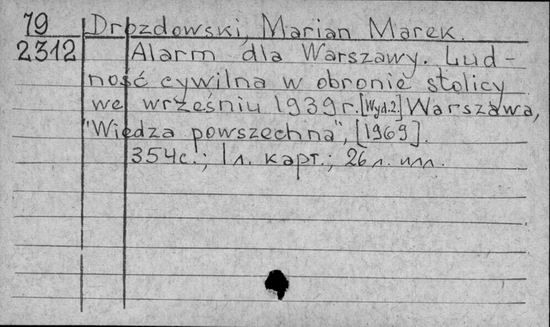 79 Drozdowski, Marian Marek.
2312 Alarm dla Warszawy. Lud-
ność cywilna w obronie stolicy
we wrześniu 1939 r. [Wyd. 2.] Warszawa,
"Wiedza powszechna", [1969].
354 с.; 1 л. карт.; 26 л. илл.